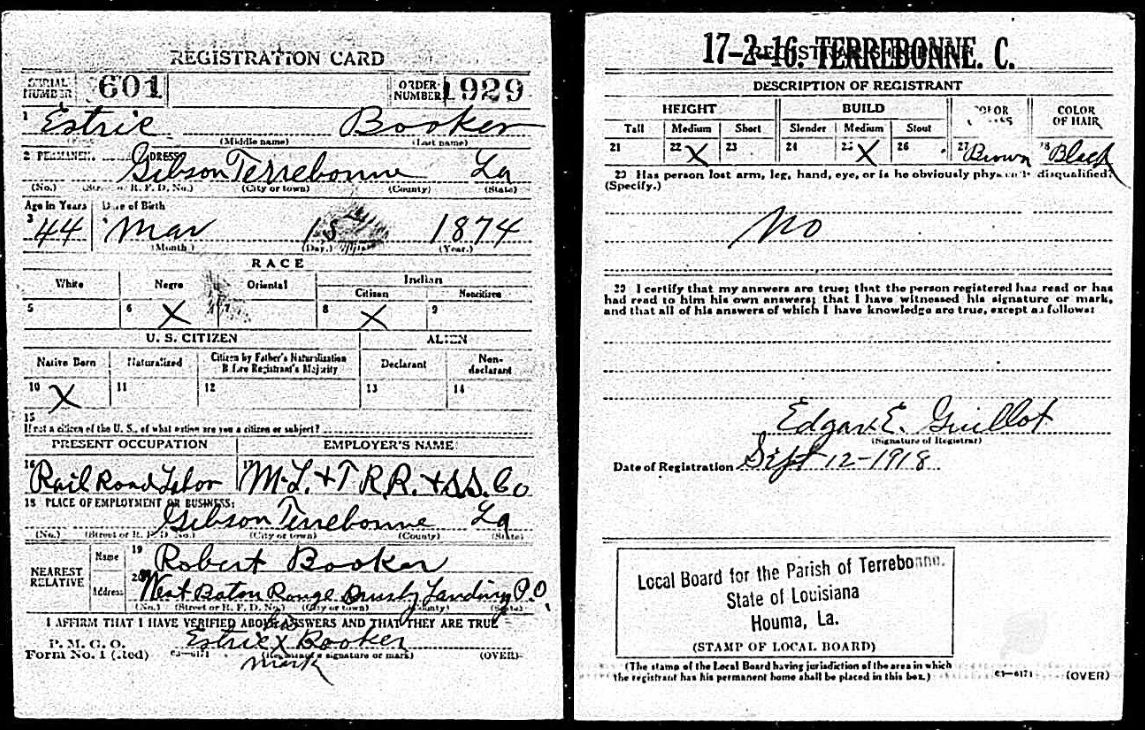 REGISTRATION CARD
SERIAL NUMBER 601 ORDER NUMBER 1929
1 Estric Booker
(Middle name) (Last name)
2 PERMANENT ADDRESS: Gibson Terrebonne La
(No.) (Street or R. F. D. No.) (City or town) (County) (State)
Age in Years Date of Birth
3 44 Mar 15 1874
(Month.) (Day.) (Year.)
RACE
White Negro Oriental Indian
Citizen Noncitizen
5 6 X 7 8 X 9
U. S. CITIZEN ALIEN
Native Born Naturalized Citizen by Father's Naturalization Before Registrant's Majority Declarant Non-declarant
10 X 11 12 13 14
15
If not a citizen of the U. S., of what nation are you a citizen or subject?
PRESENT OCCUPATION EMPLOYER'S NAME
16 Rail Road Labor 17 M. L. + T R.R. + S.S. Co
18 PLACE OF EMPLOYMENT OR BUSINESS:
Gibson Terrebonne La
(No.) (Street or R. F. D. No.) (City or town) (County) (State)
NEAREST RELATIVE Name 19 Robert Booker
Address 20 West Baton Rouge Brusly Landing P.O.
(No.) (Street or R. F. D. No.) (City or town) (County) (State)
I AFFIRM THAT I HAVE VERIFIED ABOVE ANSWERS AND THAT THEY ARE TRUE
P. M. G. O.
Form No. 1 (Red) C3—6171 Estric his X Booker
(Registrant's signature or mark) (OVER)
mark
17-2-16. TERREBONNE. C.
DESCRIPTION OF REGISTRANT
HEIGHT BUILD COLOR OF EYES COLOR OF HAIR
Tall Medium Short Slender Medium Stout
21 22 X 23 24 25 X 26 27 Brown 28 Black
29 Has person lost arm, leg, hand, eye, or is he obviously physically disqualified?
(Specify.)
No
30 I certify that my answers are true; that the person registered has read or has
had read to him his own answers; that I have witnessed his signature or mark,
and that all of his answers of which I have knowledge are true, except as follows:
Edgar E. Guillot
(Signature of Registrar)
Date of Registration Sept 12-1918
Local Board for the Parish of Terrebonne.
State of Louisiana
Houma, La.
(STAMP OF LOCAL BOARD)
(The stamp of the Local Board having jurisdiction of the area in which
the registrant has his permanent home shall be placed in this box.) C3—6171 (OVER)